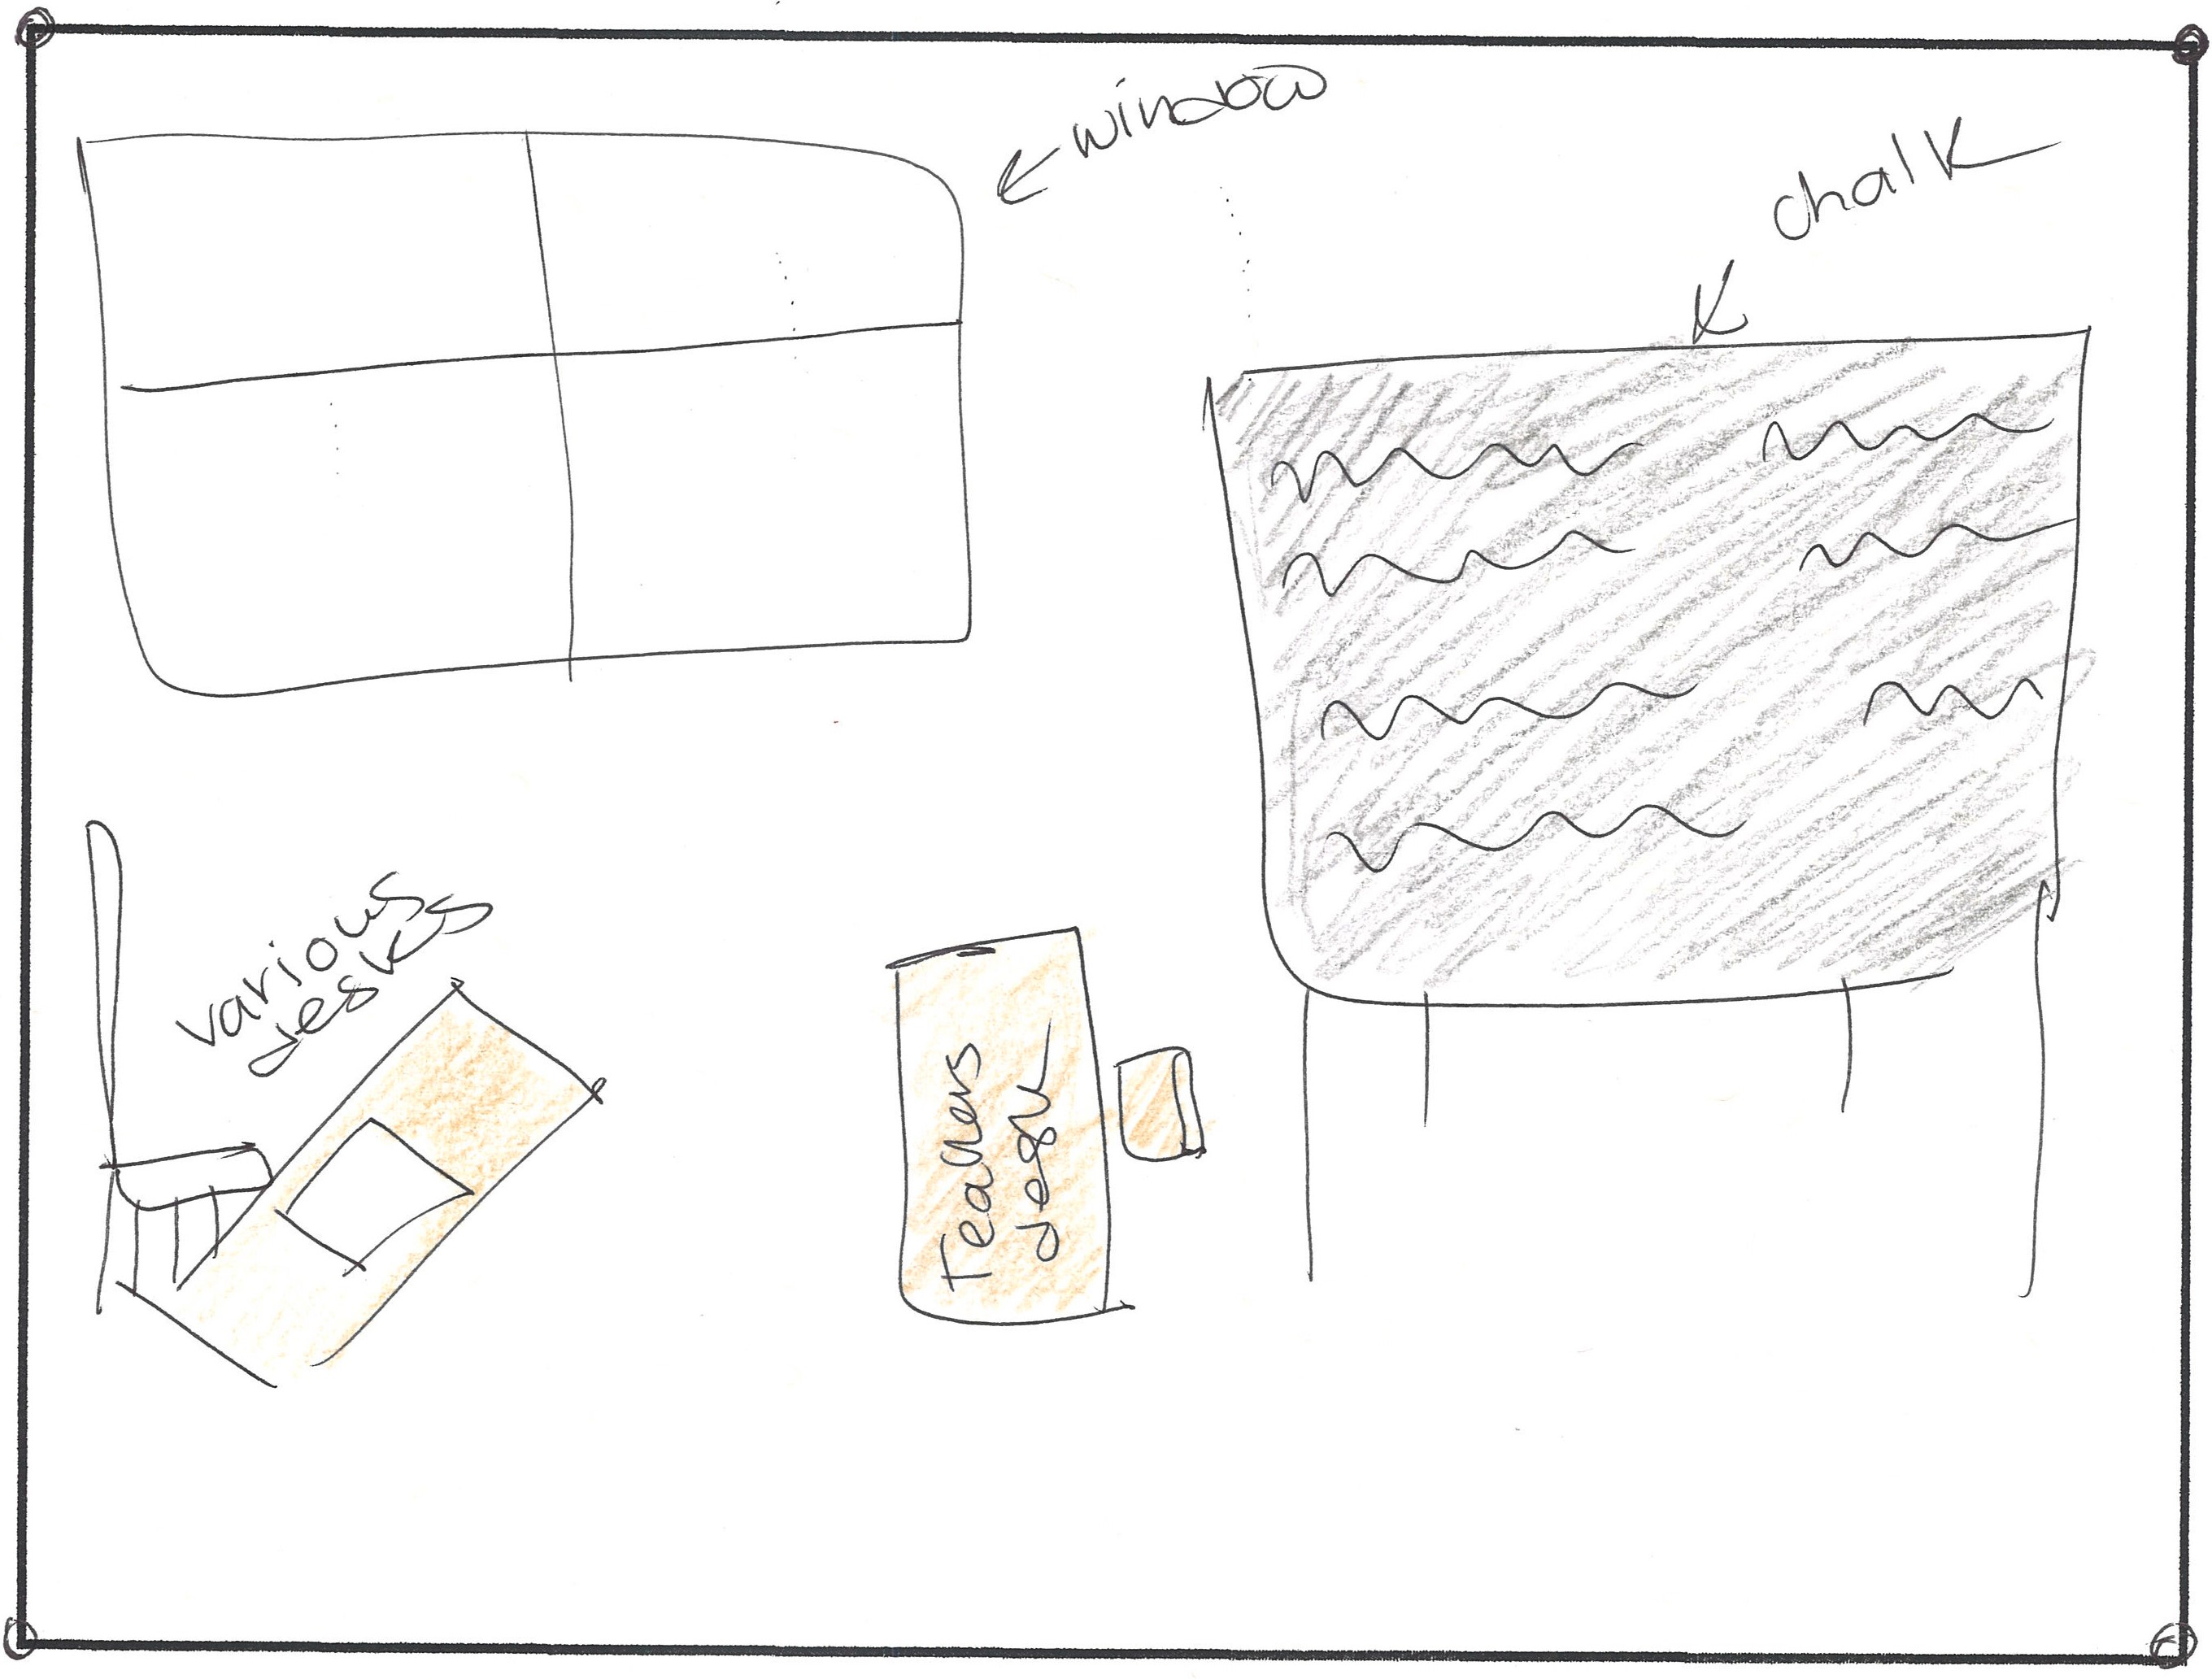 window
chalk
various
desks
Teachers
desk